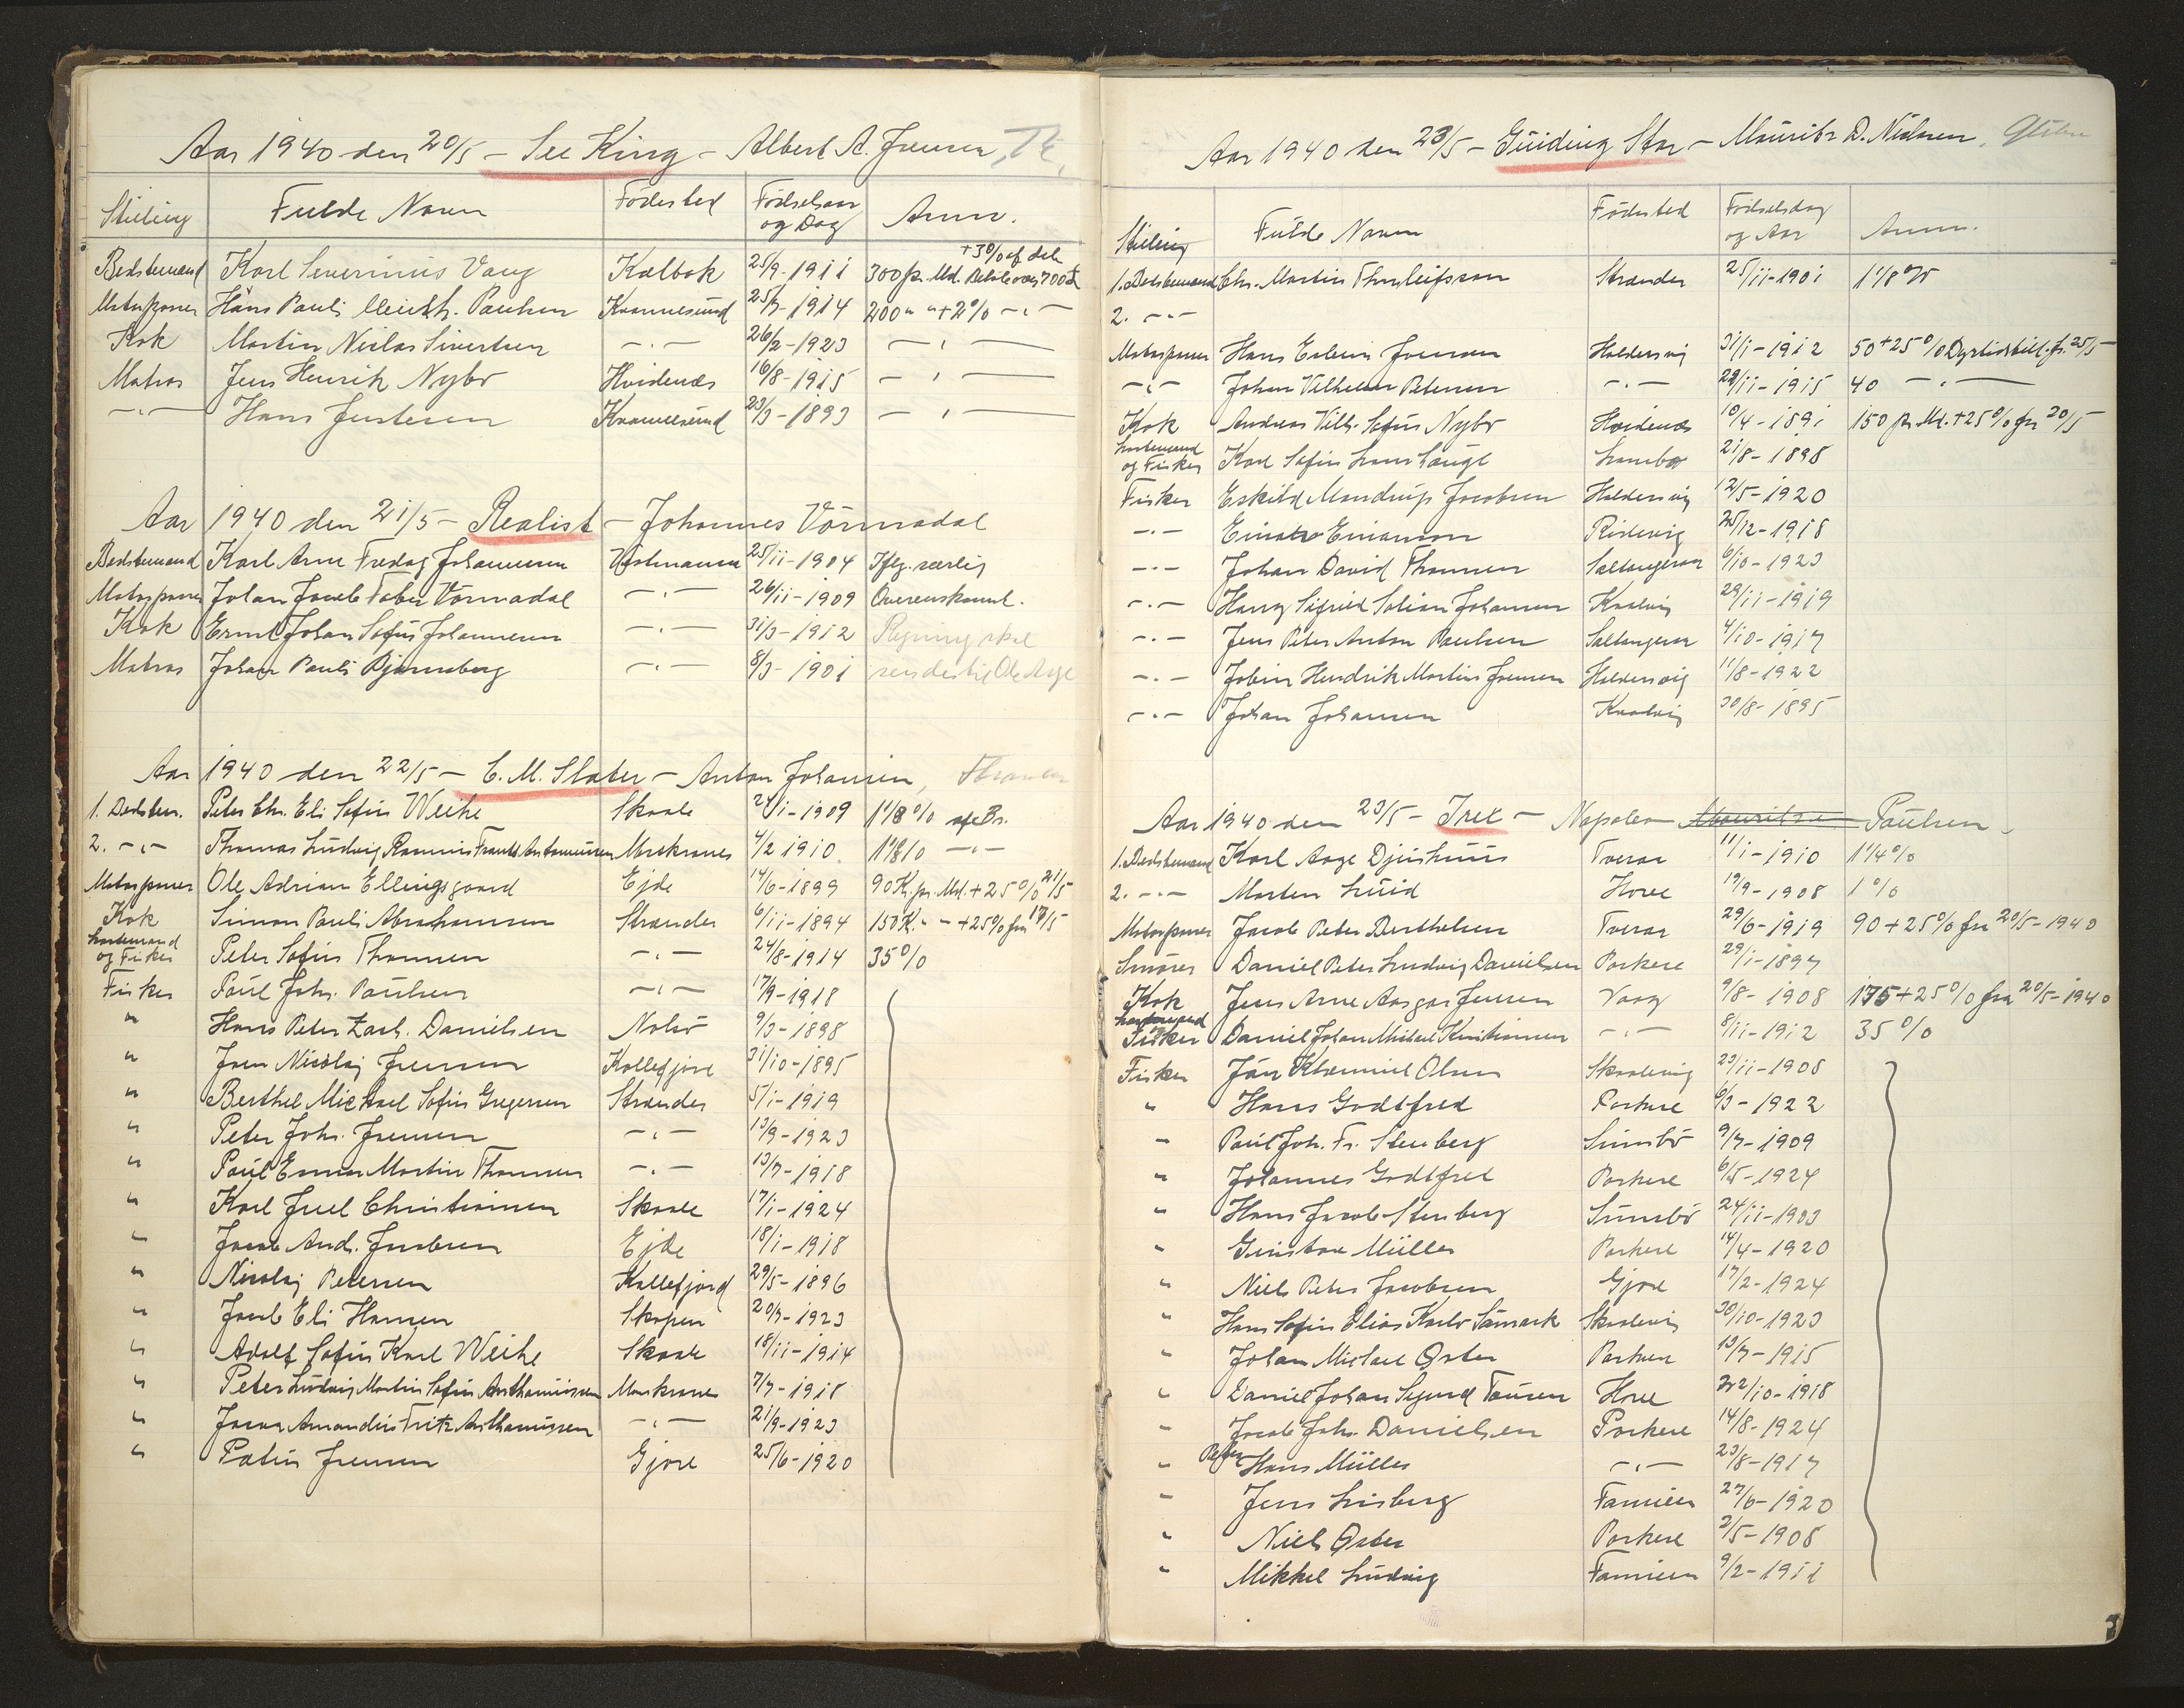 Aar 1940 den 20/5 - See King - Albert A. Joensen, Tk.
Stilling Fulde Navn Födested Födselsaar og Dag Anm.
Bedstemand Karl Severinus Vang Kalbak 25/9-1911 300 pr. Md. +3% af del
Motorpasser Hans Pauli Paulsen Kvannesund 25/7-1914 200 " " +2% -"-
Kok Martin Niclas Sivertsen -"- 26/2-1923 -"-
Matros Jens Henrik Nybo Hvidenæs 16/8-1915 -"-
-"- Hans Justesen Kvannesund 23/3-1893 -"-
Aar 1940 den 21/5 - Realist - Johannes Vörmadal
Bedstemand Karl Arne Fredag Johannesen Vestmanna 25/11-1904 Iflg. særlig
Motorpasser Johan Jacob Faber Vörmadal -"- 26/11-1909 Overenskomst.
Kok Ernst Johan Sofus Johannesen -"- 31/3-1912 Regning skal
Matros Johan Pauli Bjarnaberg -"- 8/3-1901 sendes til Ole Aage
Aar 1940 den 22/5 - C. M. Slater - Anton Johansen,
1. Bedstem. Peter Chr. Eli Sofus Weihe Skaale 1-1909 1 1/8 % af Br.
2. -"- Thomas Ludvig Rasmus Frants Anthoniussen Morskranes 4/2 1910 1 1/8 % -"-
Motorpasser Ole Adrian Ellingsgaard Ejde 14/6-1899 90 K. pr. Md. +25% 21/5
Kok Simon Pauli Abrahamsen Strænder 6/11-1894 150 K. " - +25% fra 17/5
Lastemand og Fisker Peter Sofus Thomsen -"- 24/8-1914 35%
Fisker Paul Johs. Paulsen -"- 17/9-1918
" Hans Peter Zach. Danielsen Nolsö 9/3-1898
" Joen Nicolaj Joensen Kollefjord 31/10-1895
" Berthel Michael Sofus Gregersen Strænder 5/1-1919
" Peter Johs. Joensen -"- 13/9-1923
" Paul Esmar Martin Thomsen -"- 13/7-1918
" Karl Juel Christiansen Skaale 17/1-1924
" Jacob And. Jacobsen Ejde 18/1-1918
" Nicolaj Petersen Kollefjord 29/5-1896
" Jacob Eli Hansen Skopen 20/7-1923
" Adolf Sofus Karl Weihe Skaale 18/11-1914
" Peter Ludvig Martin Sofus Anthoniussen Morskranes 7/7-1918
" Amandus Fritz Anthoniussen -"- 21/9-1923
" Petur Joensen Gjove 25/6-1920
Aar 1940 den 23/5 - Guiding Star - Mouritz D. Nielsen,
Stilling Fulde Navn Födested Födselsdag og Aar Anm.
1. Bedstemand Chr. Martin Thorleifsson Strænder 25/11-1901 1 1/8 %
2. -"-
Motorpasser Hans Erluin Joensen Haldersvig 31/1-1912 50+25% Dyrtidstill. fr. 25/5
-"- Johan Vilhelm Petersen -"- 29/11-1915 40 -"-
Kok Andreas Vilh. Sofus Nybo Hvidenæs 10/4-1891 150 pr. Md. +25% fra 20/5
Lastemand og Fisker Karl Sofus Lamhauge Lambo 21/8-1898
Fisker Eskild Mandrup Jacobsen Haldersvig 12/5-1920
-"- Einar Einarson Ridevig 25/12-1918
-"- Johan David Thomsen Saltangeraa 6/10-1923
-"- Harry Sigfried Salian Johansen Kvalvig 29/11-1919
-"- Jens Peter Anton Poulsen Saltangeraa 4/10-1917
-"- Jobin Hendrik Martin Joensen Haldersvig 11/8-1922
-"- Johan Johansen Kvalvig 30/8-1895
Aar 1940 den 23/5 - Irex - Napoleon Mouritzen Paulsen
1. Bedstemand Karl Aage Djurhuus Tveraa 11/1-1910 1 1/4 %
2. -"- Morten Luid Hove 19/9-1908 1 %
Motorpasser Jacob Peter Berthelsen Tveraa 29/6-1919 90+25% fra 20/5-1940
Smører Daniel Peter Ludvig Danielsen Porkere 29/1-1897
Kok Jens Arne Aasgar Jensen Vaag 9/8-1908 175+25% fra 20/5-1940
Lastemand Fisker Daniel Johan Michael Kristiansen -"- 8/11-1912 35%
Fisker Jån Klæmint Olsen Skaalevig 23/11-1908
" Hans Godtfred Porkere 6/3-1922
" Paul Joh. Fr. Stenberg Sumbö 9/7-1909
" Johannes Godtfred Porkere 6/5-1924
" Hans Jacob Stenberg Sumbö 24/11-1903
" Gustav Müller Porkere 14/4-1920
" Niels Peter Jacobsen Gjove 17/2-1924
" Hans Sofus Elias Karlo Samark Skaalevig 30/10-1923
" Johan Michael Øster Porkere 13/7-1915
" Daniel Johan Sigurd Tausen Hove 22/10-1918
" Jacob Johs. Danielsen Porkere 14/8-1924
" Peter Hans Müller -"- 23/8-1917
" Jens Lisberg Famien 27/6-1920
" Niels Øster Porkere 2/5-1908
" Mikkel Ludvig Famien 9/2-1911